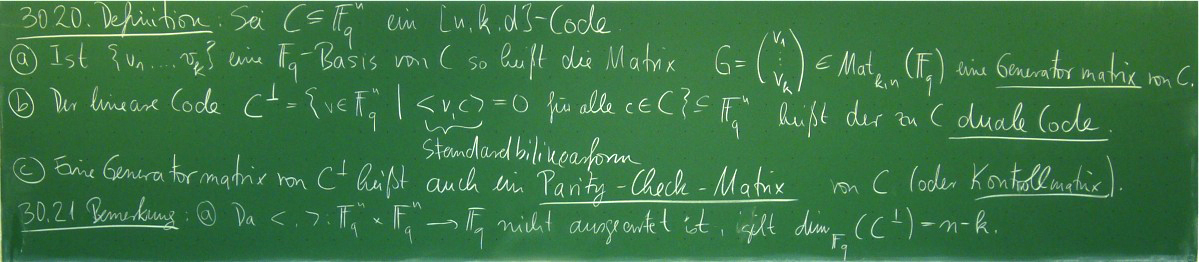 30.20. Definition: Sei C ⊆ F_q^n ein [n,k,d]-Code.
(a) Ist {v_1, ..., v_k} eine F_q-Basis von C so heißt die Matrix G = (v_1 ⋮ v_k) ∈ Mat_{k,n}(F_q) eine Generatormatrix von C.
(b) Der lineare Code C^⊥ = {v ∈ F_q^n | <v,c> = 0 für alle c ∈ C} ⊆ F_q^n heißt der zu C duale Code.
Standardbilinearform
(c) Eine Generatormatrix von C^⊥ heißt auch ein Parity-Check-Matrix von C (oder Kontrollmatrix).
30.21 Bemerkung: (a) Da < , >: F_q^n × F_q^n → F_q nicht ausgeartet ist, gilt dim_{F_q}(C^⊥) = n-k.